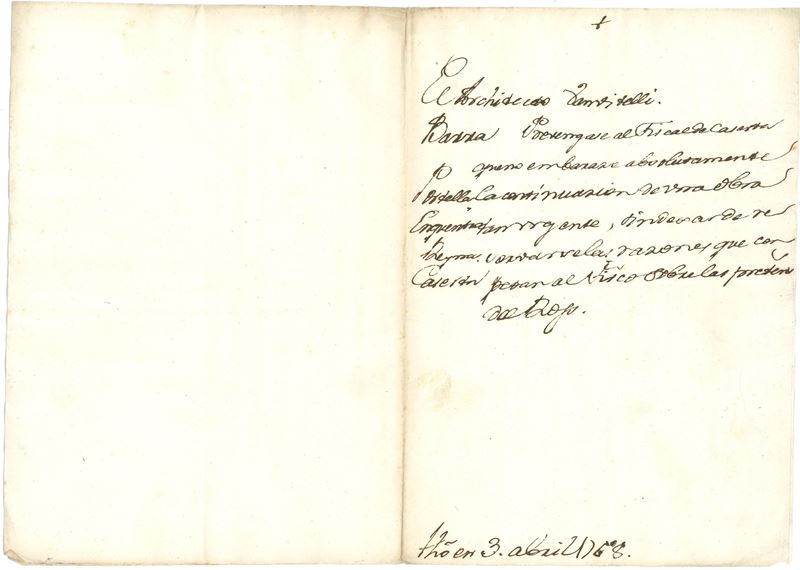 +
El Architecto Vanvitelli.
Barra Prevengase al Fiscal de Caserta
P que no embaraze absolutamente
Portella la continuazion de una obra
tan urgente, sin dexar de re
Reyna. servarse las razones que com
Caserta petan al Fisco sobre las preten
de
fho en 3. abril 1768.